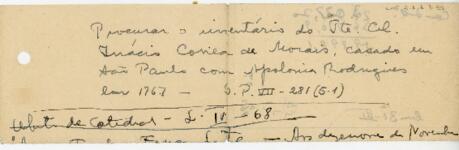 Procurar o inventário do Tte Cl.
Inácio Correia de Morais, casado em
São Paulo com Apolonia Rodrigues
em 1767 — S.P. VII - 281 (5.1)
de Catedral - L. IV - 68
As dezenove de Novembro